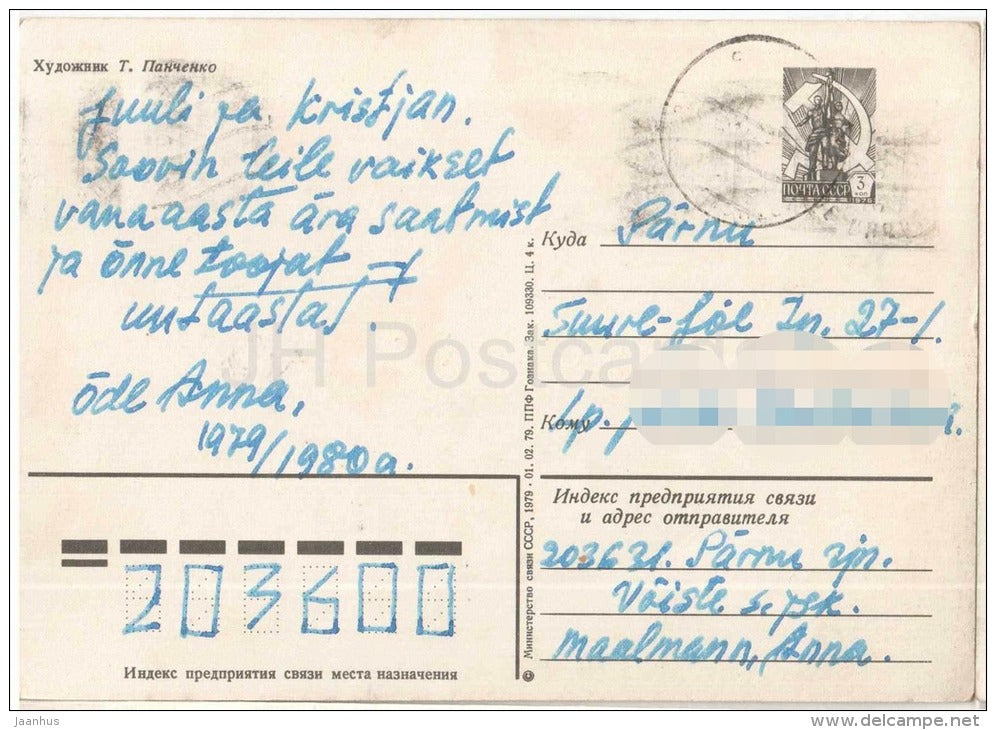 Художник Т. Панченко
Juuli ja Kristjan.
Soovin teile vaikset
vana aasta ära saatmist
ja õnne toojat
uutaastat.
õde Anna.
1979/1980a.
ПОЧТА СССР
3
КОП
1978
Куда Pärnu
Suure-Jõe Tn. 27-1
Кому
Индекс предприятия связи
и адрес отправителя
203631. Pärnu rjn.
Võiste s. jsk.
Maalmann, Anna.
203600
Индекс предприятия связи места назначения
© Министерство связи СССР, 1979 · 01. 02. 79. ППФ Гознака. Зак. 109330. Ц. 4 к.
JH Postcards
jaanhus
www.delcampe.net